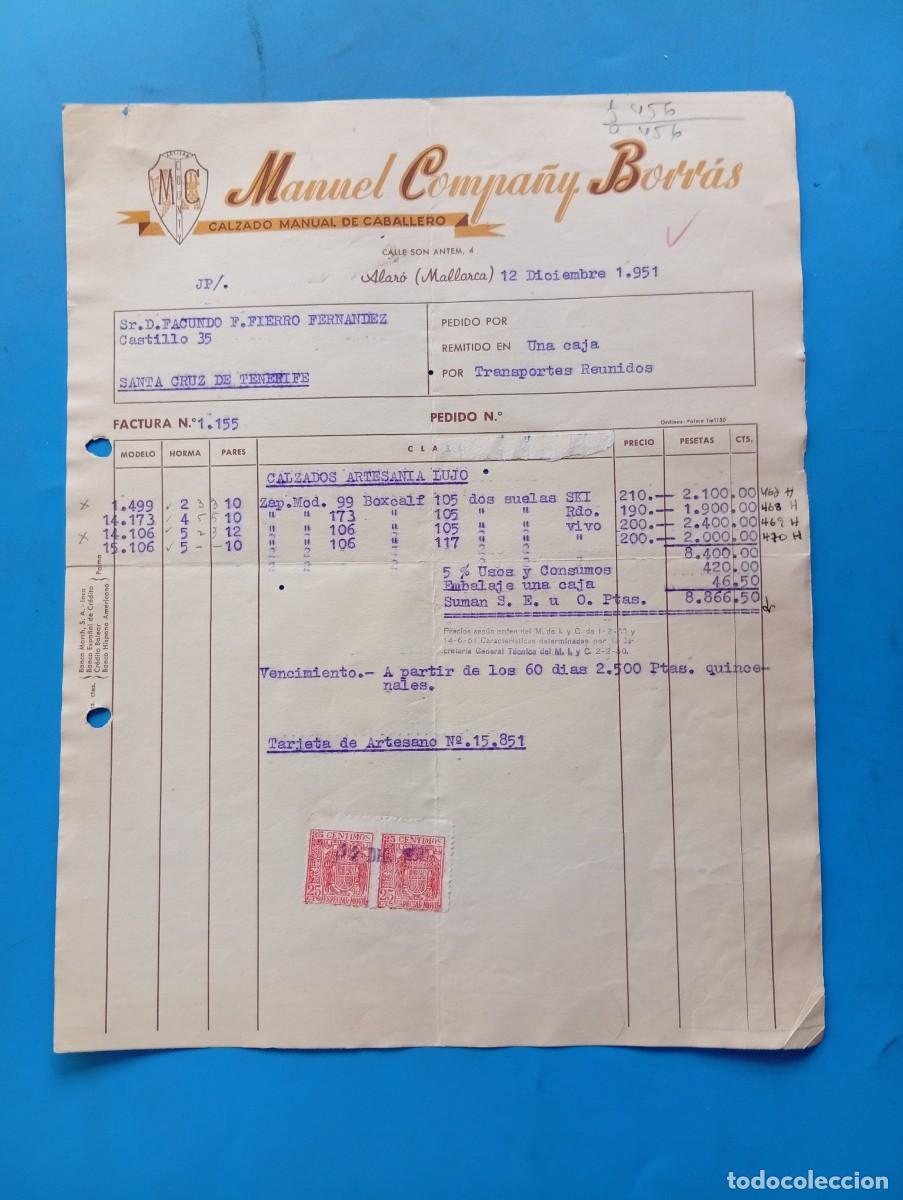 456
456
M C
Manuel Compañy Borrás
CALZADO MANUAL DE CABALLERO
CALLE SON ANTEM, 4
JP/. Alaró (Mallorca) 12 Diciembre 1.951
Sr.D.FACUNDO F.FIERRO FERNANDEZ
Castillo 35
SANTA CRUZ DE TENERIFE
PEDIDO POR
REMITIDO EN Una caja
POR Transportes Reunidos
FACTURA N.º 1.155 PEDIDO N.º
MODELO HORMA PARES CLA PRECIO PESETAS CTS.
CALZADOS ARTESANIA LUJO
1.499 2 3 3 10 Zap.Mod. 99 Boxcalf 105 dos suelas SKI 210.— 2.100.00 467 H
14.173 4 5 5 10 " " 173 " 105 " " Rdo. 190.— 1.900.00 468 H
14.106 5 12 " " 106 " 105 " " vivo 200.— 2.400.00 469 H
15.106 5 - - 10 " " 106 " 117 " " " 200.— 2.000.00 470 H
8.400.00
5 % Usos y Consumos 420.00
Embalaje una caja 46.50
Suman S. E. u O. Ptas. 8.866.50
Precios según orden del M. de I. y C. de
Características determinadas por
cretaría General Técnica del M. I. y C. 2-2-50.
Banco March, S. A. - Inca
Banco Español de Crédito
Crédito Balear
Banco Hispano Americano
Palma
ctes.
Vencimiento.- A partir de los 60 dias 2.500 Ptas. quince-
nales.
Tarjeta de Artesano Nº.15.851
25 CENTIMOS 25 CENTIMOS
DIC
25 25
ESPECIAL MOVIL ESPECIAL MOVIL
todocoleccion